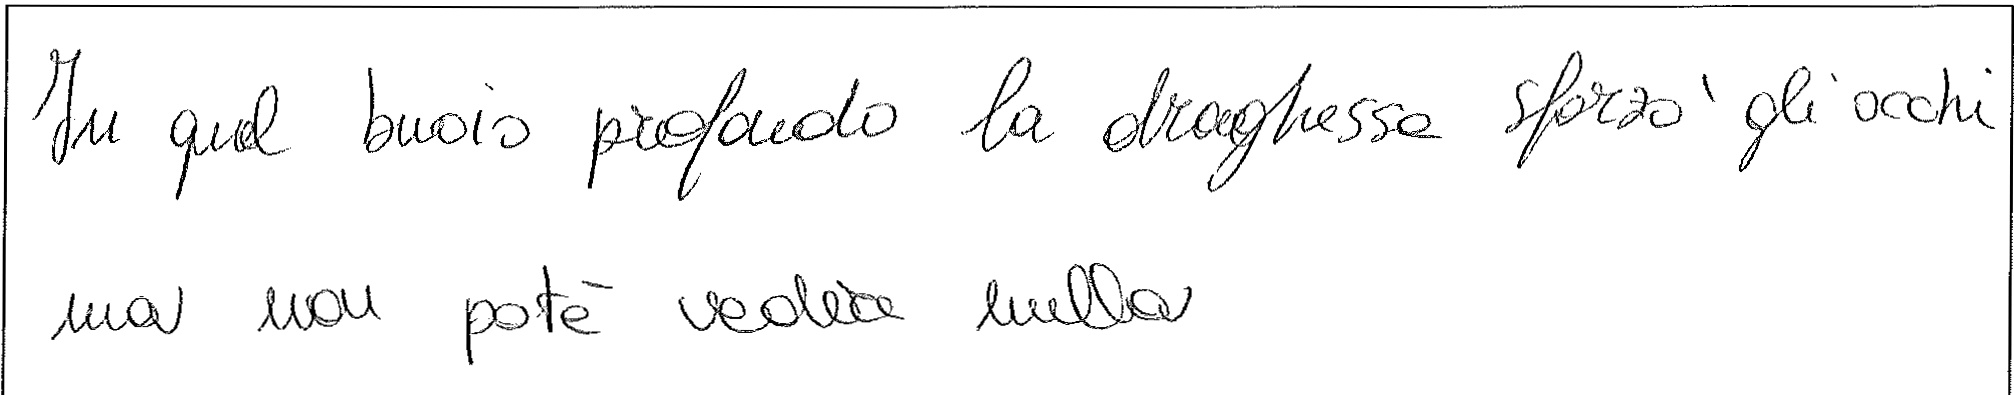 In quel buoio profondo la draghessa sforzò gli occhi
ma non potè vedere nulla